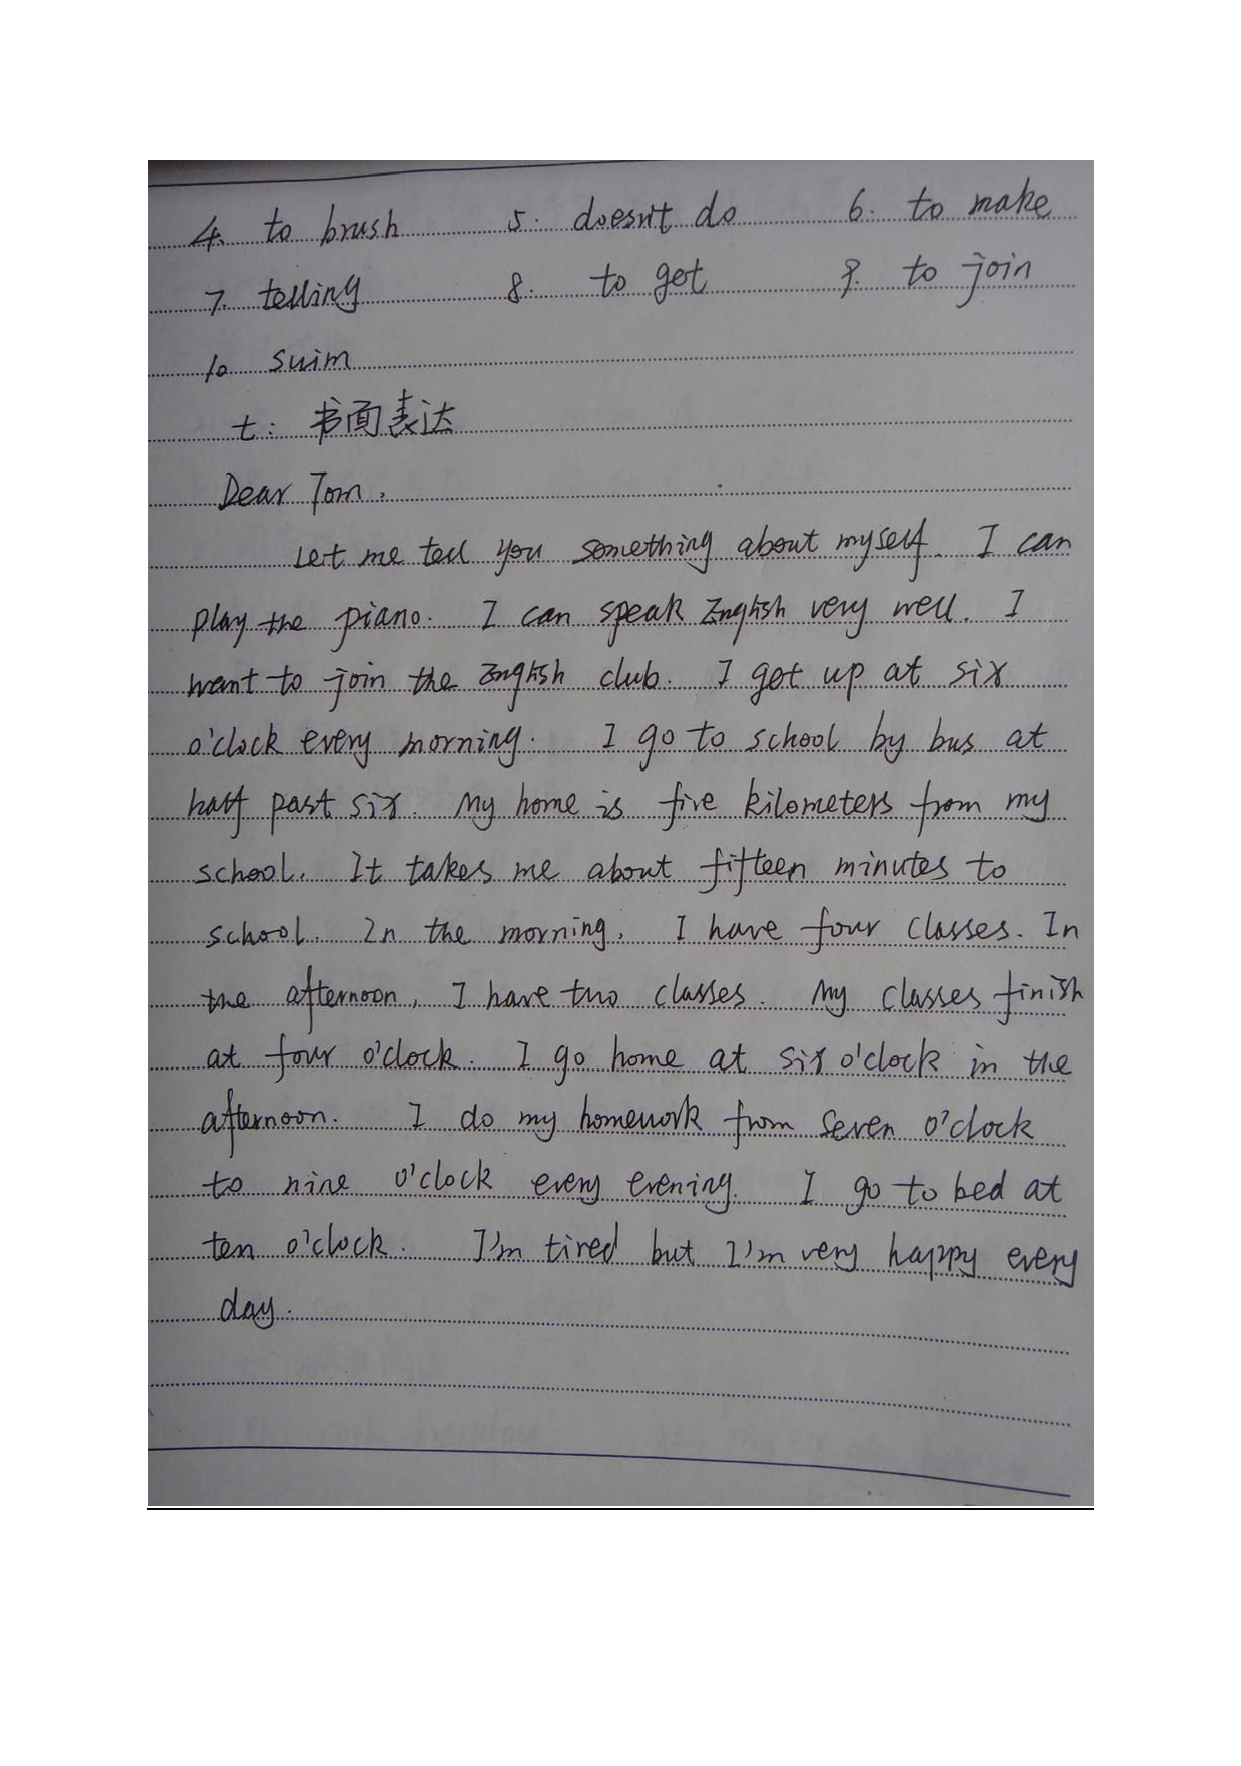 4. to brush 5. doesn't do 6. to make
7. telling 8. to get 9. to join
10 swim
七: 书面表达
Dear Tom,
Let me tell you something about myself. I can
play the piano. I can speak English very well. I
want to join the English club. I get up at six
o'clock every morning. I go to school by bus at
half past six. My home is five kilometers from my
school. It takes me about fifteen minutes to
school. In the morning, I have four classes. In
the afternoon, I have two classes. My classes finish
at four o'clock. I go home at six o'clock in the
afternoon. I do my homework from seven o'clock
to nine o'clock every evening. I go to bed at
ten o'clock. I'm tired but I'm very happy every
day.